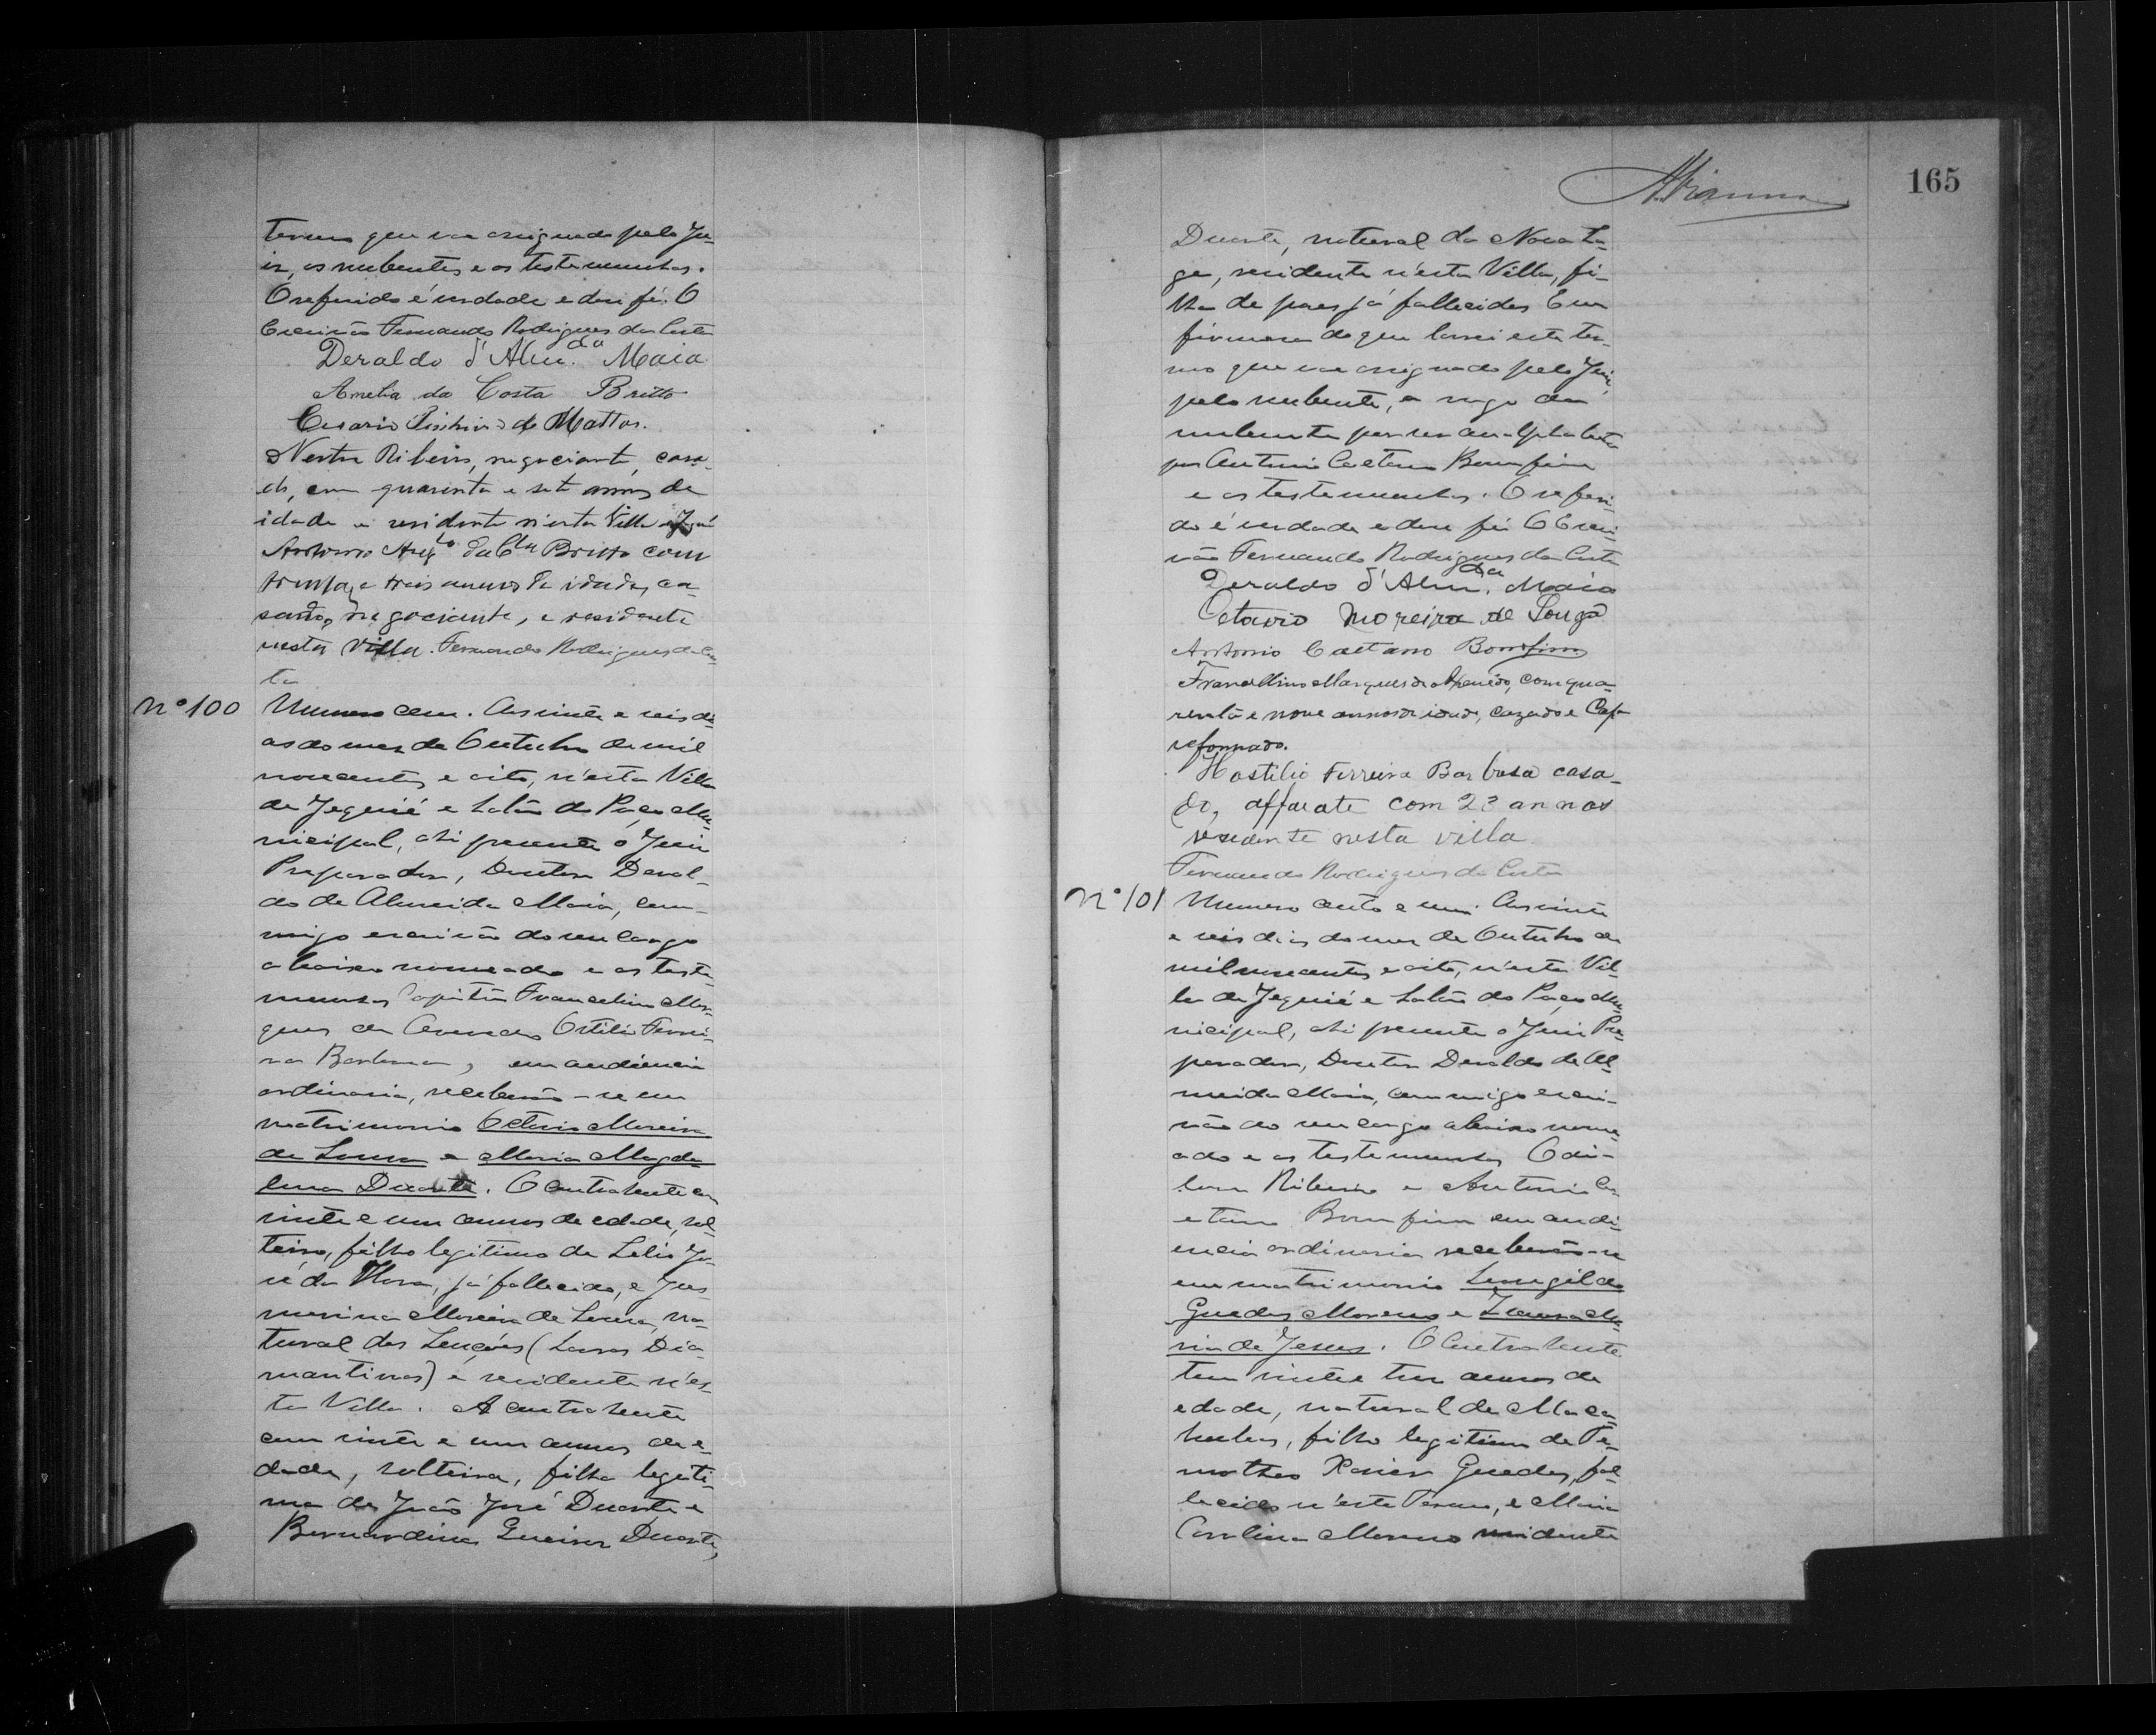 termo que vae assignado pelo Ju-
iz, os nubentes e as testemunhas.
O referido é verdade e dou fé. O
Escrivão Fernando Rodrigues da Costa
Deraldo d'Alm.da Maia
Amelia da Costa Britto
Cesario de Mattos.
Nestor Ribeiro, negociante, casa-
do, com quarenta e sete annos de
idade e residente n'esta Villa
Antonio Aug.to da C.ta Britto com
trinta e treis annos de idade, ca-
sado, negociante, e residente
nesta Villa. Fernando Rodrigues da Cos-
ta
Nº 100
Numero cem. Aos vinte e seis di-
as do mez de Outubro de mil
novecentos e oito, n'esta Villa
de Jequié e Salão do Paço Mu-
nicipal, ahi presente o Juiz
Preparador, Doutor Deral-
do de Almeida Maia, com-
migo escrivão do seu cargo
abaixo nomeado e as teste-
munhas Capitão Francelino Mar-
ques de Ortilio Ferrei-
ra Barbosa, em audiencia
ordinaria, receberão-se em
matrimonio Octavio Moreira
de Souza e Maria Magda-
lena Duarte. O contrahente com
vinte e um annos de edade, sol-
teiro, filho legitimo de Lelio Jo-
sé da Hora, já fallecido, e
Moreira de Souza, na-
tural dos Lençóes (Lavras Dia-
mantinas) e residente n'es-
ta Villa. A contrahente
com vinte e um annos de e-
dade, solteira, filha legiti-
ma de João José Duarte e
Bernardina Duarte,
165
Duarte, natural da Nova La-
ge, residente n'esta Villa, fi-
lha de paes já fallecidos Em
firmesa do que lavrei este ter-
mo que vae assignado pelo Juiz,
pelo nubente, a rogo da
nubente por ser analphabeta
por Antonio Caetano Bomfim
e as testemunhas. O referi-
do é verdade e dou fé O Escri-
vão Fernando Rodrigues da Costa
Deraldo d'Alm.da Maia
Octavio Moreira de Souza
Antonio Caetano Bomfim
Francellino Marques de, com qua-
renta e nove annos de idade, cazado e Cap.
reformado.
Hostilio Ferreira Barbosa casa-
do, com 23 annos
residente nesta villa
Fernando Rodrigues da Costa
Nº 101
Numero cento e um. Aos vinte
e seis dias do mez de Outubro de
mil novecentos e oito, n'esta Vil-
la de Jequié e Salão do Paço Mu-
nicipal, ahi presente o Juiz Pre-
parador, Doutor Deraldo de Al-
meida Maia, commigo escri-
vão do seu cargo abaixo nome-
ado e as testemunhas Odi-
lon Ribeiro e Antonio Ca-
etano Bomfim em audi-
encia ordinaria receberão-se
em matrimonio
Guedes Moreno e Ma-
ria de Jesus. O Contrahente
tem vinte e tres annos de
edade, natural de Maca-
hubas, filho legitimo de Ti-
motheo Xavier Guedes, fal-
lecido n'este Termo, e Maria
Carolina Moreno residente